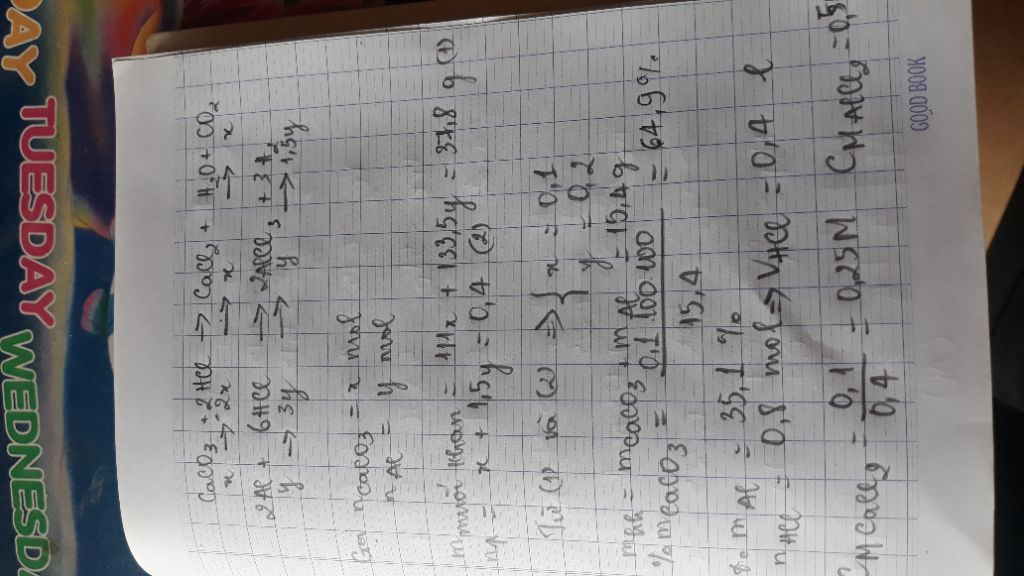 DAY TUESDAY WEDNESDA
CaCO₃ + 2HCl → CaCl₂ + H₂O + CO₂
x → 2x → x → x
2Al + 6HCl → 2AlCl₃ + 3H₂
y → 3y → y → 1,5y
Gọi nCaCO₃ = x mol
nAl = y mol
m muối khan = 111x + 133,5y = 37,8 g (1)
x + 1,5y = 0,4 (2)
Từ (1) và (2) ⇒ { x = 0,1
y = 0,2
= mCaCO₃ + mAl = 15,4 g
% mCaCO₃ = 0,1.100.100 / 15,4 = 64,9%
% mAl = 35,1 %
nHCl = 0,8 mol ⇒ VHCl = 0,4 l
CM CaCl₂ = 0,1 / 0,4 = 0,25M CM AlCl₃ = 0,5
GOOD BOOK